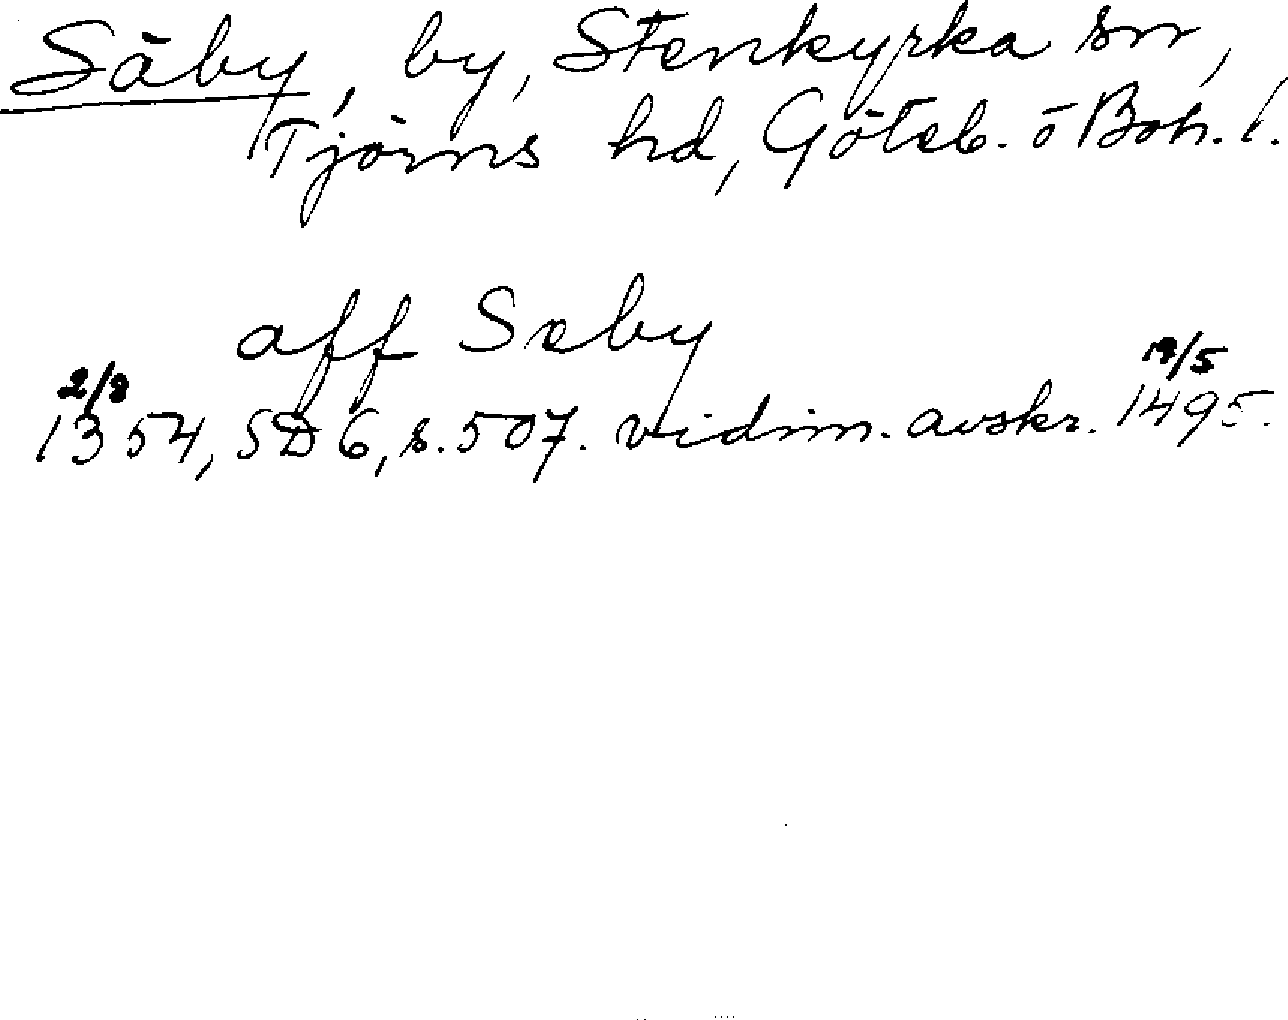 Säby, by, Stenkyrka sn,
Tjörns hd, Göteb. o Boh. l.
aff Sæby
2/8 12/5
1354, SD 6, s. 507. vidim. avskr. 1495.